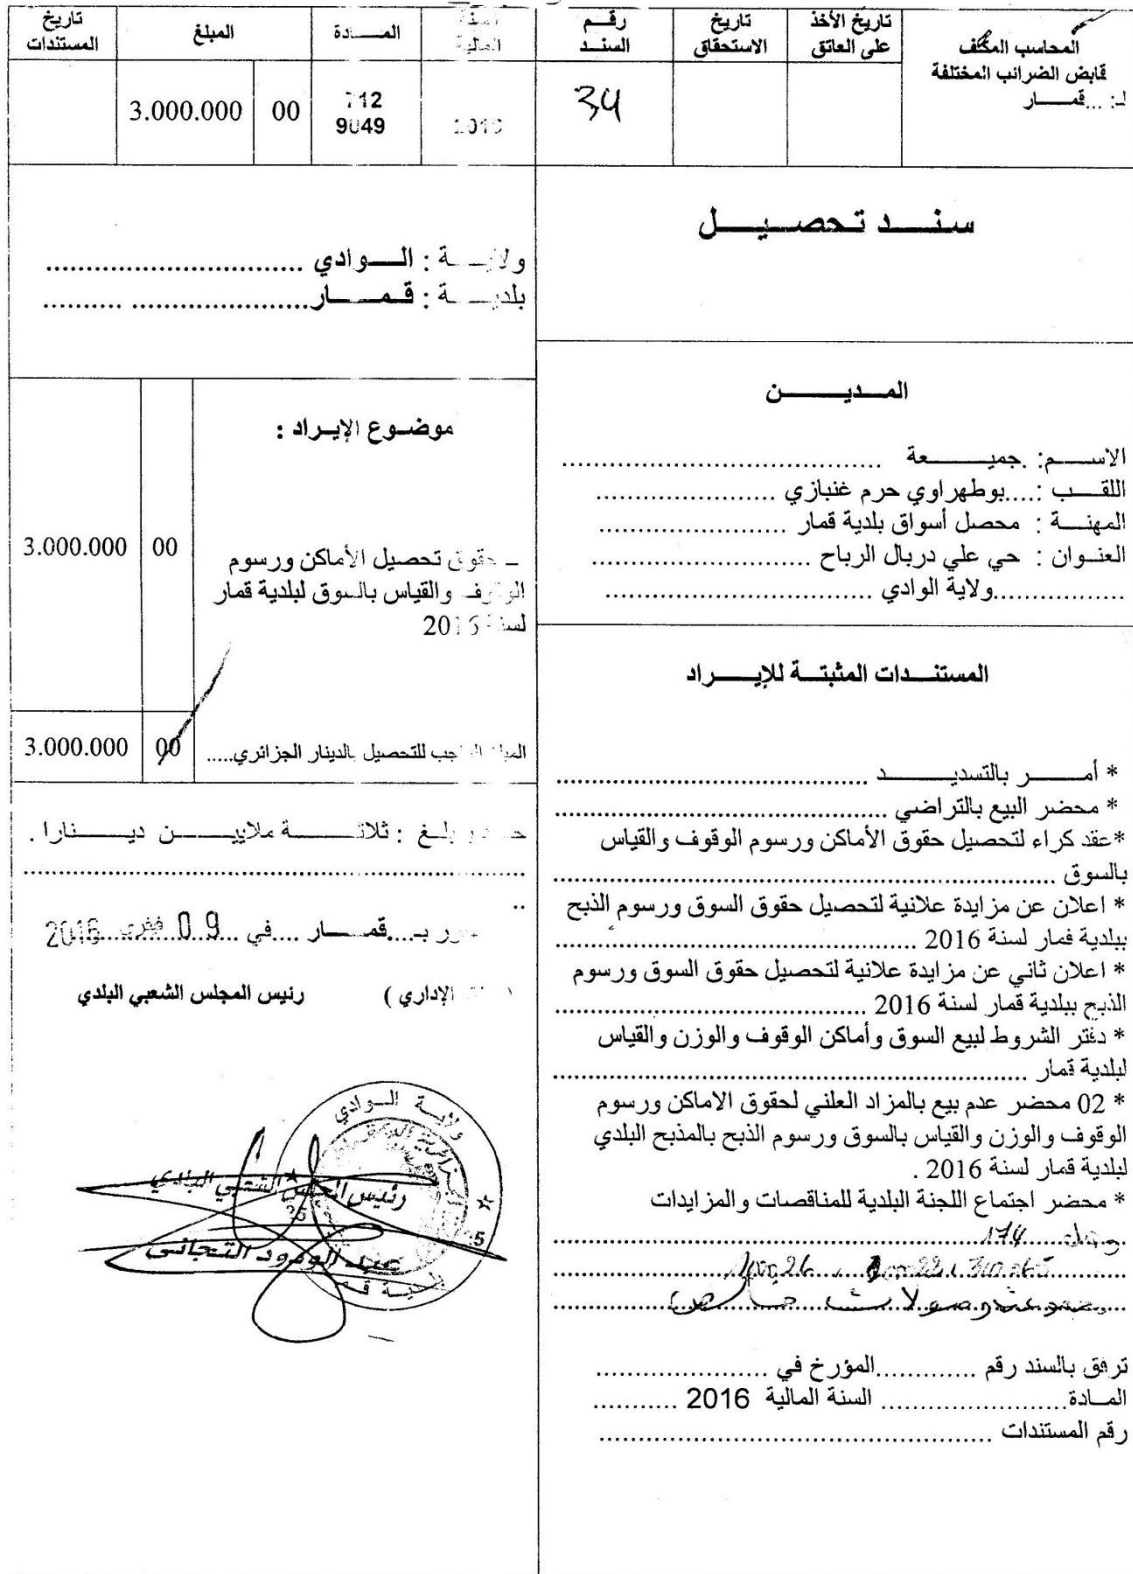 المحاسب المكلف
قابض الضرائب المختلفة
لـ: ...قمـــار
تاريخ الأخذ على العاتق
تاريخ الاستحقاق
رقم السند
34
المالية
المـــادة
712
9049
المبلغ
00
3.000.000
تاريخ المستندات
سنـــد تـحصـــيـــل
المـديـــــن
الاســـم: .جميـــــعة ......................................
اللقــب :....بوطهراوي حرم غنبازي ......................
المهنــة : محصل أسواق بلدية قمار .......................
العنـوان : حي علي دربال الرباح ..........................
................ولاية الوادي ................................
المستنــدات المثبتــة للإيــــراد
* أمــــر بالتسديــــــد ................................
* محضر البيع بالتراضي ................................
*عقد كراء لتحصيل حقوق الأماكن ورسوم الوقوف والقياس
بالسوق ................................
* اعلان عن مزايدة علانية لتحصيل حقوق السوق ورسوم الذبح
ببلدية قمار لسنة 2016 ................................
* اعلان ثاني عن مزايدة علانية لتحصيل حقوق السوق ورسوم
الذبح ببلدية قمار لسنة 2016 ................................
* دفتر الشروط لبيع السوق وأماكن الوقوف والوزن والقياس
لبلدية قمار ................................
* 02 محضر عدم بيع بالمزاد العلني لحقوق الاماكن ورسوم
الوقوف والوزن والقياس بالسوق ورسوم الذبح بالمذبح البلدي
لبلدية قمار لسنة 2016 .
* محضر اجتماع اللجنة البلدية للمناقصات والمزايدات
174
ترفق بالسند رقم .............المؤرخ في ......................
المــادة........................ السنة المالية 2016 ...........
رقم المستندات ................................
ولايـــة : الـــوادي ................................
بلديـــة : قـمـــــار..................... ..........
موضـوع الإيـراد :
ـ حقوق تحصيل الأماكن ورسوم
الوقوف والقياس بالسوق لبلدية قمار
لسنة 2016
00
3.000.000
المبلغ الواجب للتحصيل بالدينار الجزائري.....
00
3.000.000
بلـغ : ثلاثـــــة ملاييـــــن ديـــــنارا .
..
بـ....قمـــار ....في ...09 فيفري 2016
الإداري )
رئيس المجلس الشعبي البلدي
ولايـة الـوادي
رئيس المجلس الشعبي البلدي
عبد الودود التجاني